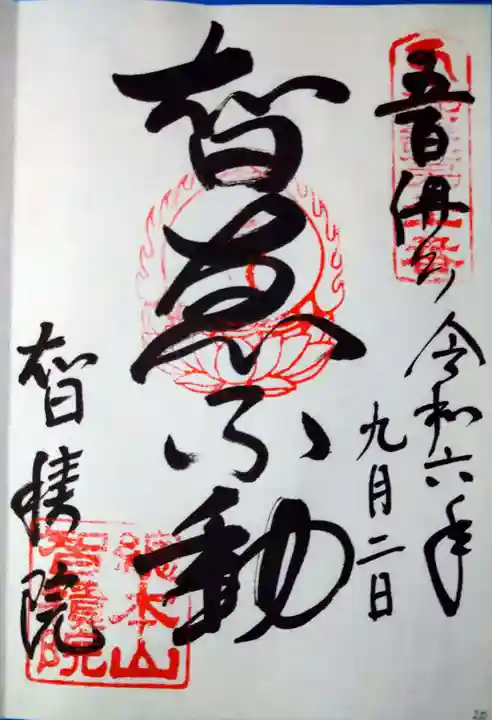 五百佛山
令和六年
九月二日
智恵不動
智積院
總本山
智積院